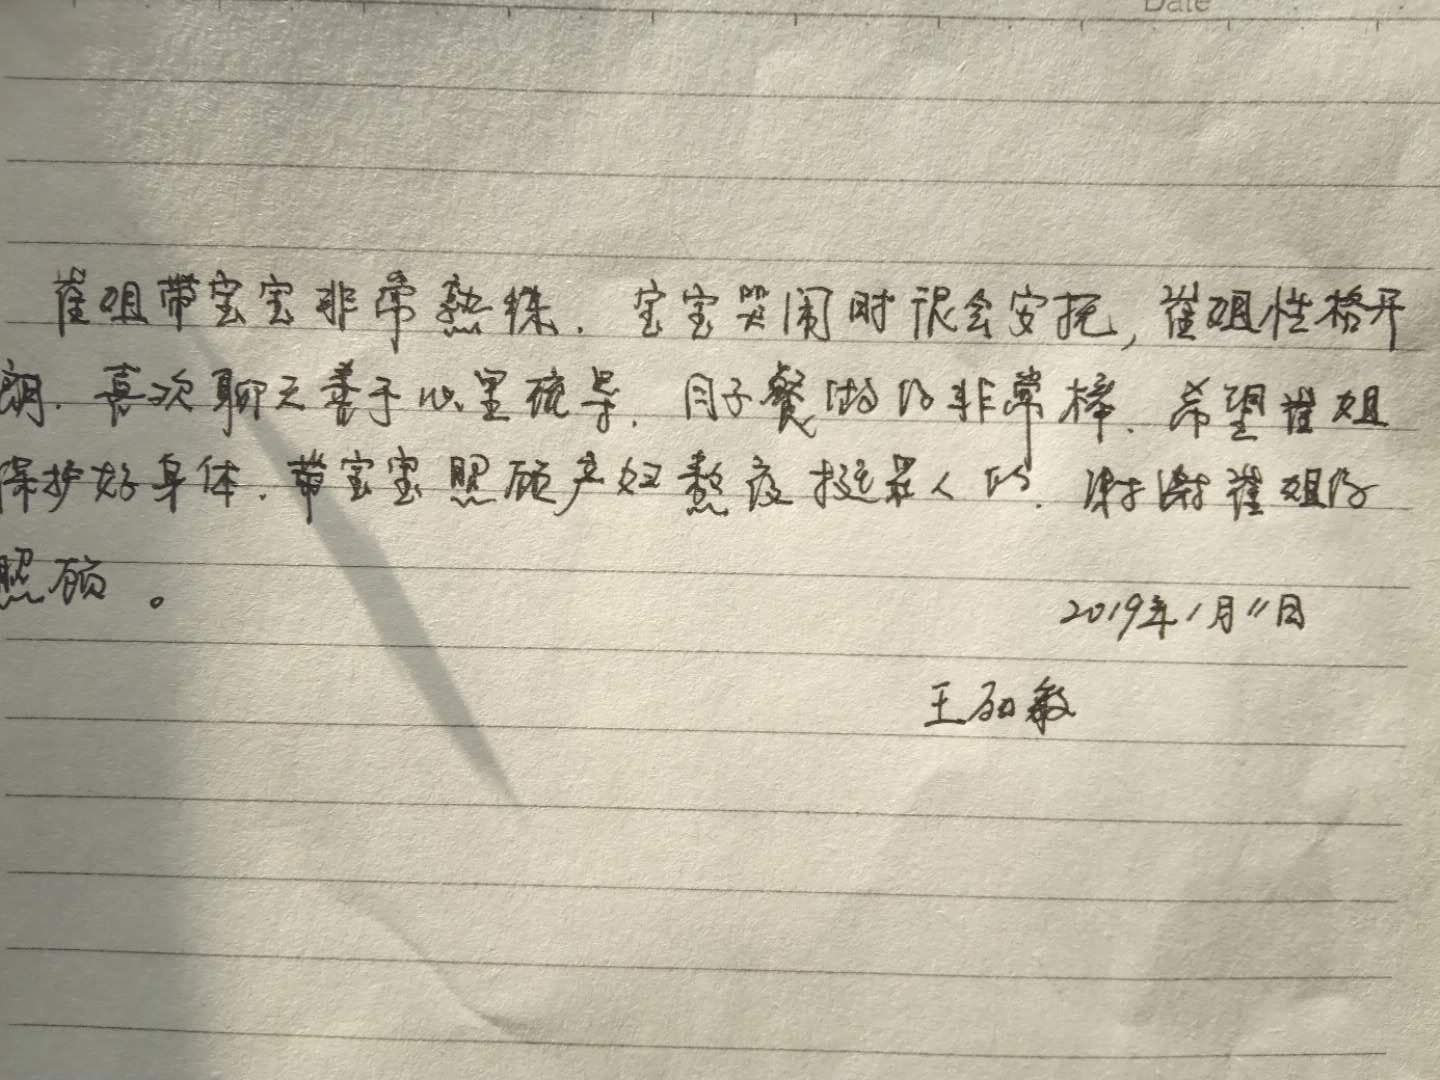 Date
崔姐带宝宝非常熟练. 宝宝哭闹时很会安抚, 崔姐性格开
朗. 喜欢聊天善于心里疏导. 月子餐做的非常棒. 希望崔姐
保护好身体. 带宝宝照顾产妇熬夜挺累人的. 谢谢崔姐的
照顾。
2019年1月11日
王 敏